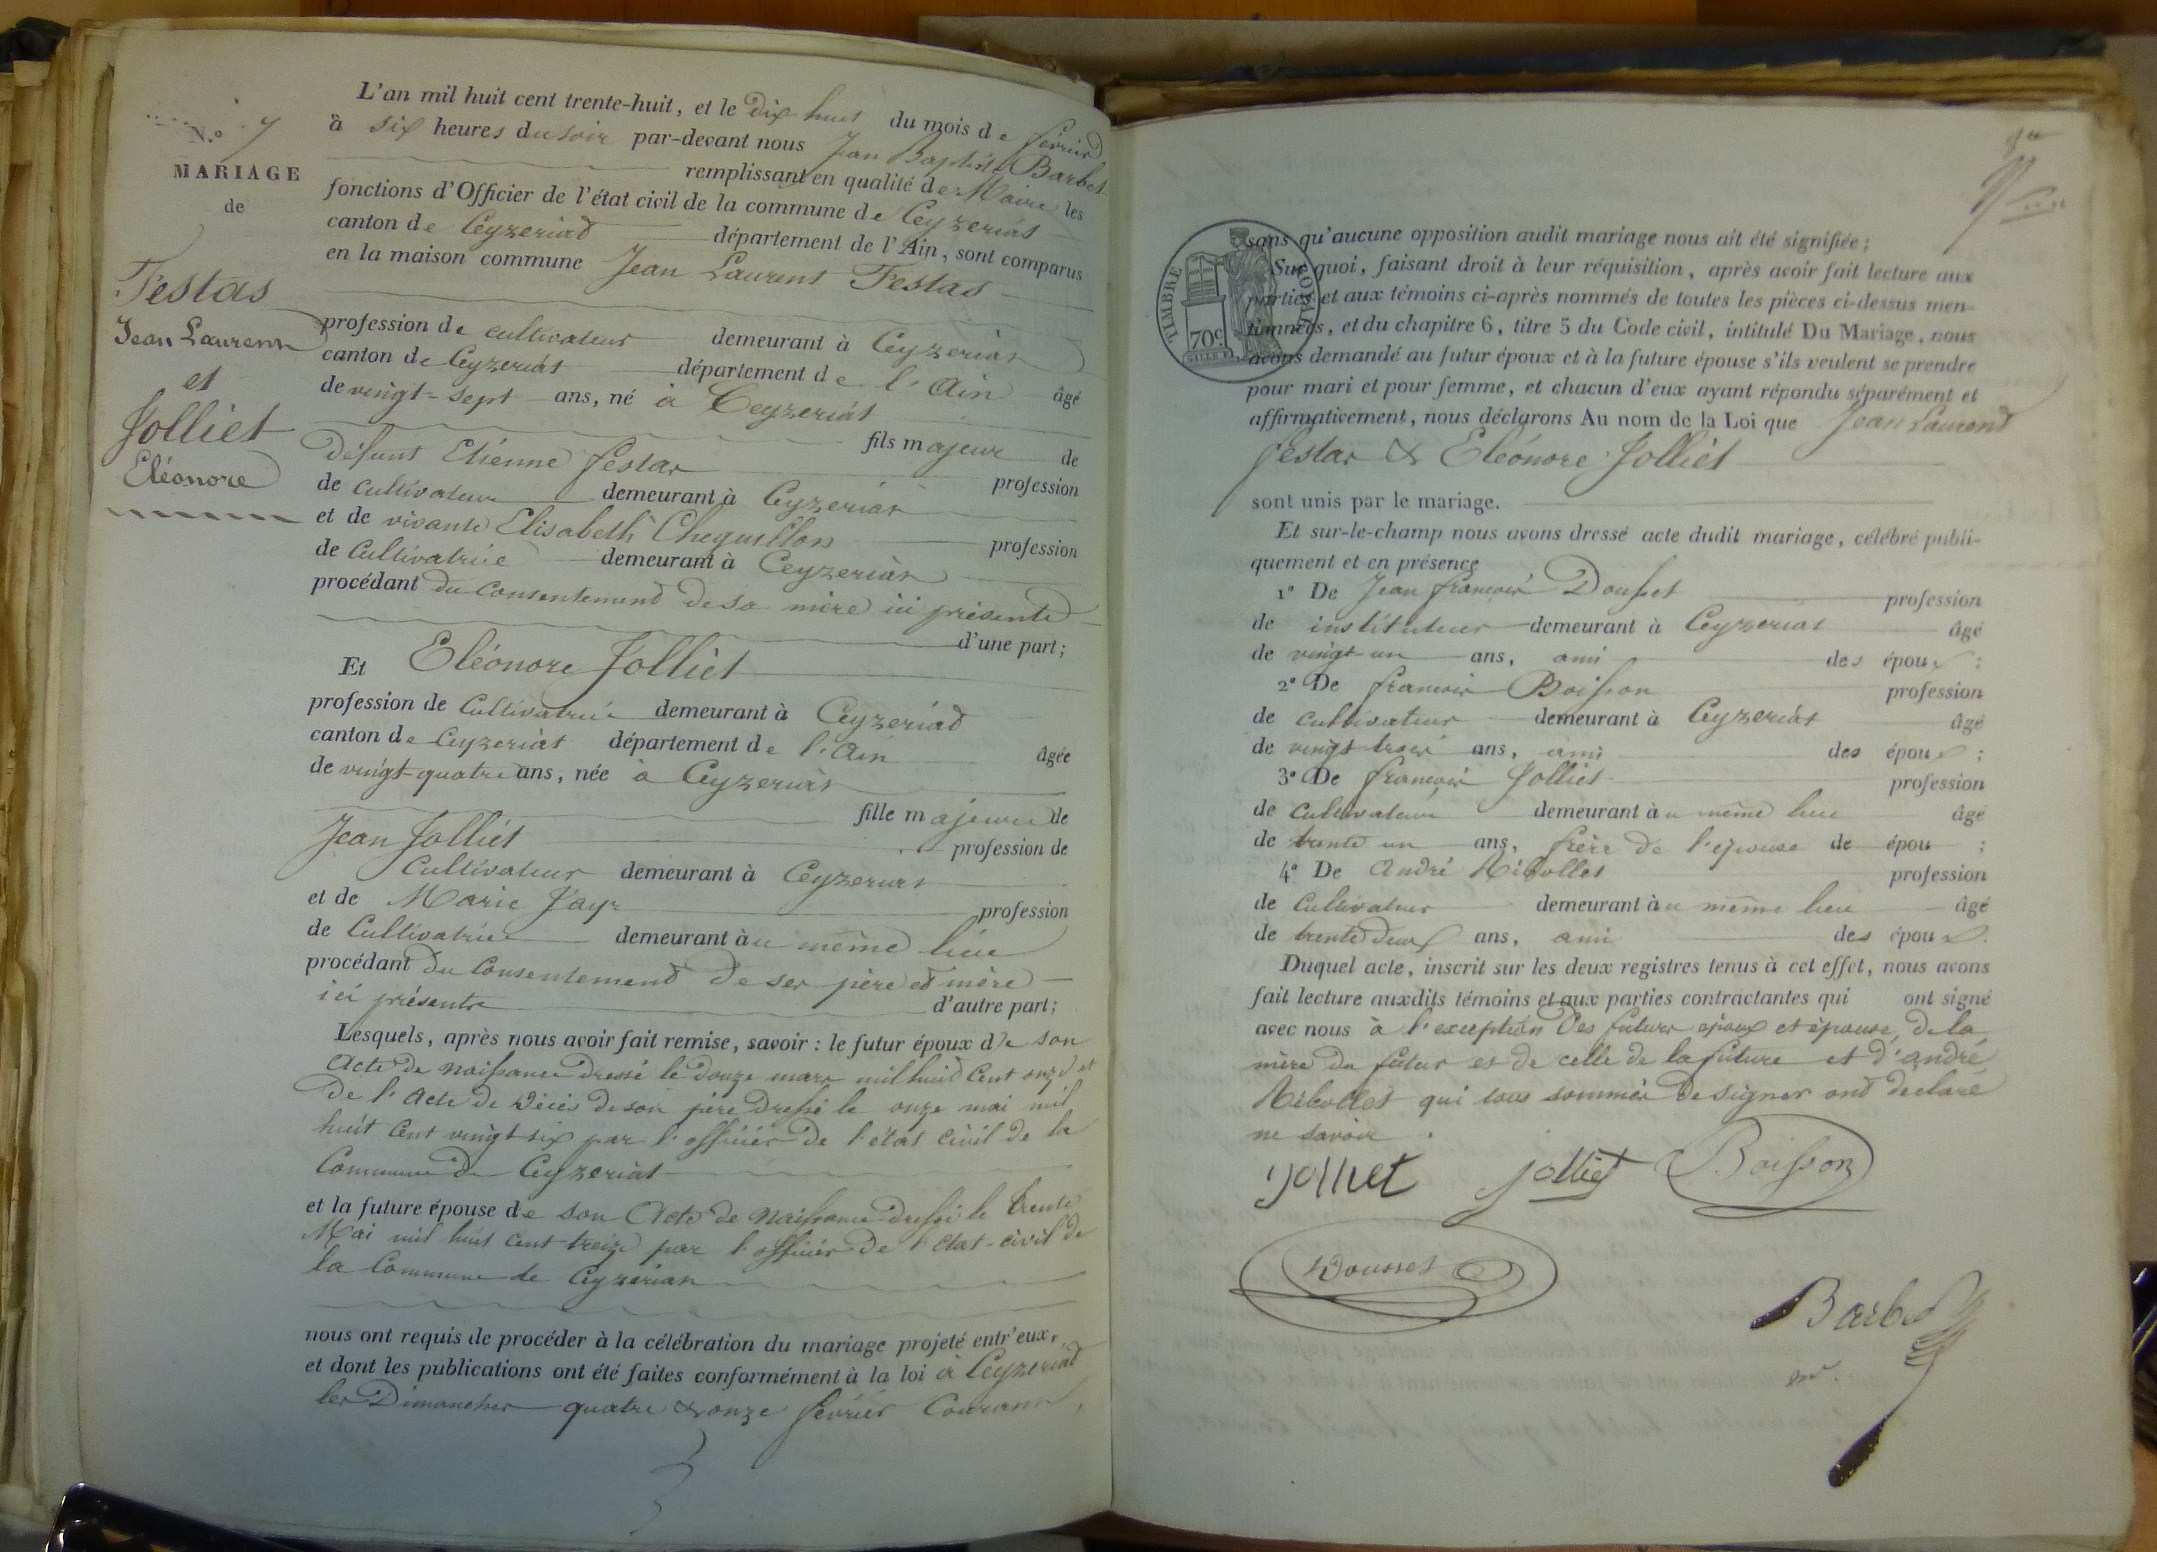 N.o 7
MARIAGE
de
Festas
Jean Laurent
et
Jolliet
Eléonore
L'an mil huit cent trente-huit, et le dix huit du mois de février
à six heures du soir par-devant nous Jean Baptiste Barbet
remplissant en qualité de Maire les
fonctions d'Officier de l'état civil de la commune de Ceyzériat
canton de Ceyzériat département de l'Ain, sont comparus
en la maison commune Jean Laurent Festas
profession de cultivateur demeurant à Ceyzériat
canton de Ceyzériat département de l'Ain âgé
de vingt-sept ans, né à Ceyzériat
fils majeur de
défunt Etienne festas profession
de cultivateur demeurant à Ceyzériat
et de vivante Elisabeth Cheguillon profession
de Cultivatrice demeurant à Ceyzériat
procédant du consentement de sa mère ici présente
d'une part;
Et Eléonore Jolliet
profession de Cultivatrice demeurant à Ceyzériat
canton de Ceyzériat département de l'Ain âgée
de vingt-quatre ans, née à Ceyzériat
fille majeure de
Jean Jolliet profession de
Cultivateur demeurant à Ceyzériat
et de Marie Jayr profession
de Cultivatrice demeurant au même lieu
procédant du Consentement de ses père et mère
ici présents d'autre part;
Lesquels, après nous avoir fait remise, savoir : le futur époux de son
acte de naissance dressé le douze mars mil huit Cent onze et
de l'acte de décès de son père dressé le onze mai mil
huit Cent vingt six par l'officier de l'état civil de la
Commune de Ceyzériat
et la future épouse de son Acte de Naissance dressé le trente
Mai mil huit cent treize par l'officier de l'état-civil de
la Commune de Ceyzériat
nous ont requis de procéder à la célébration du mariage projeté entr'eux,
et dont les publications ont été faites conformément à la loi à Ceyzériat
les Dimanches quatre & onze février Courant,
TIMBRE ROYAL
70c.
sans qu'aucune opposition audit mariage nous ait été signifiée;
Sur quoi, faisant droit à leur réquisition, après avoir fait lecture aux
parties et aux témoins ci-après nommés de toutes les pièces ci-dessus men-
tionnées, et du chapitre 6, titre 5 du Code civil, intitulé Du Mariage, nous
avons demandé au futur époux et à la future épouse s'ils veulent se prendre
pour mari et pour femme, et chacun d'eux ayant répondu séparément et
affirmativement, nous déclarons Au nom de la Loi que Jean Laurent
festas & Eléonore Jolliet
sont unis par le mariage.
Et sur-le-champ nous avons dressé acte dudit mariage, célébré publi-
quement et en présence
1o De Jean françois Dousset profession
de instituteur demeurant à Ceyzériat âgé
de vingt un ans, ami des époux ;
2o De françois Boisson profession
de cultivateur demeurant à Ceyzériat âgé
de vingt trois ans, ami des époux ;
3o De françois Jolliet profession
de cultivateur demeurant au même lieu âgé
de trente un ans, frère de l'épouse de épou ;
4o De André Ribollet profession
de Cultivateur demeurant au même lieu âgé
de trente deux ans, ami des époux.
Duquel acte, inscrit sur les deux registres tenus à cet effet, nous avons
fait lecture auxdits témoins et aux parties contractantes qui ont signé
avec nous à l'exception des futurs époux et épouse, de la
mère du futur et de celle de la future et d'André
Ribollet qui tous sommés de signer ont déclaré
ne savoir.
Jolliet Jolliet Boisson
Dousset
Barbet